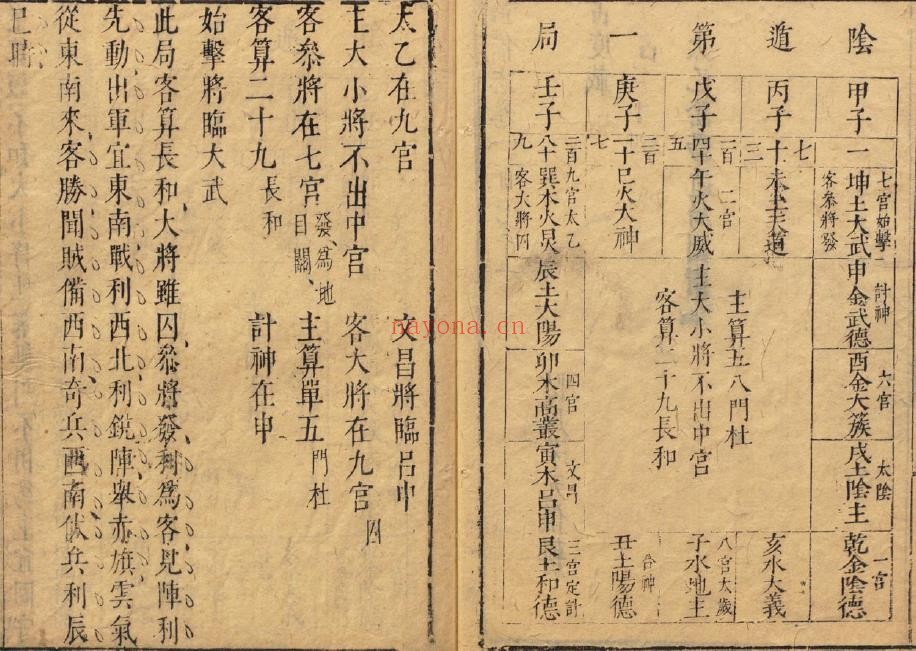 陰遁第一局
甲子 一
七宮始擊 坤土大武 客參將發
計神 申金武德
六宮 酉金大簇
太陰 戌土陰主
一宮 乾金陰德
丙子 七十三
未土天道
主算五八門杜
亥水大義
戊子 一百四十五
二宮 午火大威
主大小將不出中宮
客算二十九長和
八宮太歲 子水地主
庚子 二百一十七
巳火大神
合神 丑土陽德
壬子 二百八十九
九宮太乙 巽木火炅 客大將囚
辰土大陽
四宮 卯木高叢
文昌 寅木呂申
三宮定計 艮土和德
太乙在九宮 文昌將臨呂申
主大小將不出中宮 客大將在九宮囚
客參將在七宮發為地目關 主算單五門杜
客算二十九長和 計神在申
始擊將臨大武
此局客算長和大將雖囚參將發利為客見陣利
先動出軍宜東南戰利西北利銳陣舉赤旗雲氣
從東南來客勝聞賊備西南奇兵西南伏兵利辰
巳時
nayona.cn